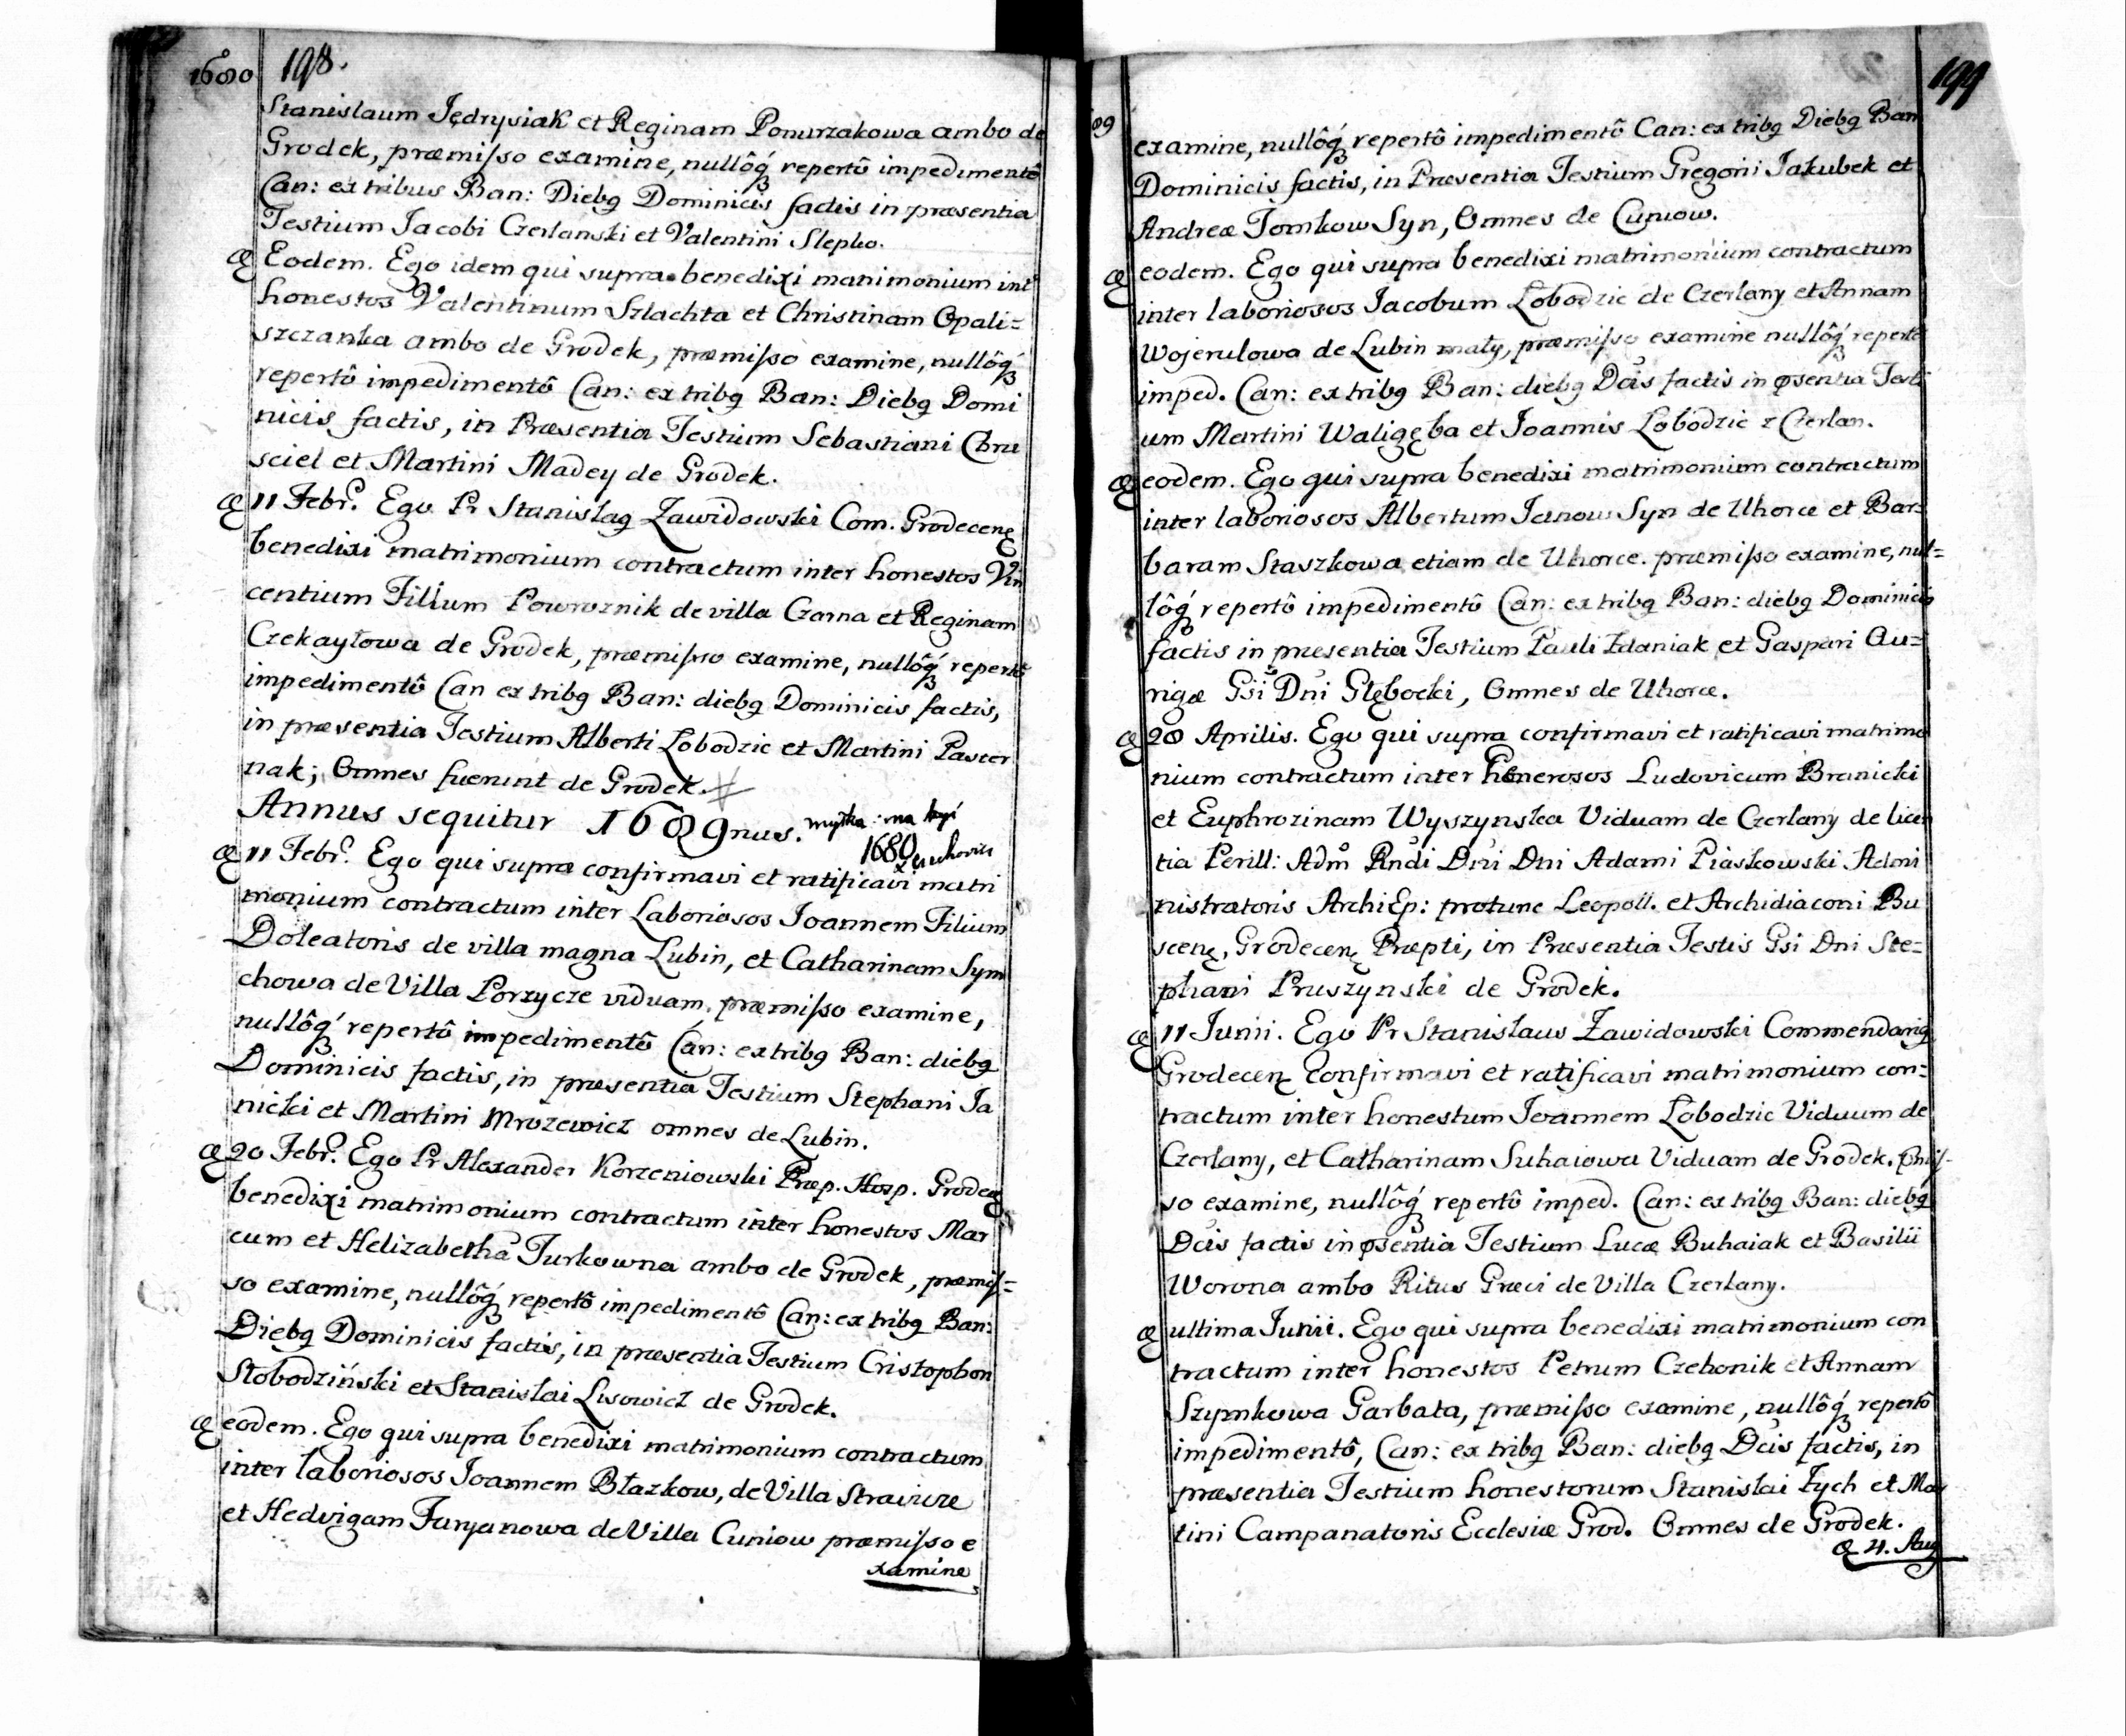 1680
198.
Stanislaum Jędrysiak et Reginam Ponurzakowa ambo de
Grodek, præmisso examine, nullôq́ꝫ repertô impedimentô
Can: ex tribus Ban: Diebꝯ Dominicis factis in præsentia
Testium Jacobi Czerlanski et Valentini Slepko.
Æ Eodem. Ego idem qui supra benedixi matrimonium int
honestos Valentinum Szlachta et Christinam Opali=
szczanka ambo de Grodek, præmisso examine, nullôq́ꝫ
repertô impedimentô Can: ex tribꝯ Ban: Diebꝯ Domi
nicis factis, in Præsentia Testium Sebastiani Chru
sciel et Martini Madey de Grodek.
Æ 11 Febr. Ego Pr Stanislaꝯ Zawidowski Com. Grodecenę
benedixi matrimonium contractum inter honestos Vin
centium Filium Powroznik de villa Czarna et Reginam
Czekayłowa de Grodek, præmisso examine, nullôq́ꝫ repertô
impedimentô Can ex tribꝯ Ban: diebꝯ Dominicis factis,
in præsentia Testium Alberti Lobodzic et Martini Paster
nak; Omnes fuerunt de Grodek. #
Annus sequitur 1689nus. myłka
1680
Æ 11 Febr. Ego qui supra confirmavi et ratificavi matri
monium contractum inter Laboriosos Joannem Filium
Doleatoris de villa magna Lubin, et Catharinam Sym
chowa de Villa Porzycze viduam, præmisso examine,
nullôq́ꝫ repertô impedimentô Can: ex tribꝯ Ban: diebꝯ
Dominicis factis, in præsentia Testium Stephani Ja
nicki et Martini Mrozewicz omnes de Lubin.
Æ 20 Febr. Ego Pr Alexander Korzeniowski Præp. Hosp. Grodeę
benedixi matrimonium contractum inter honestos Mar
cum et Helizabetha Turkowna ambo de Grodek, præmis=
so examine, nullôq́ꝫ repertô impedimentô Can: ex tribꝯ Ban:
Diebꝯ Dominicis factis, in præsentia Testium Cristophori
Słobodziński et Stanislai Lisowicz de Grodek.
Æ eodem. Ego qui supra benedixi matrimonium contractum
inter laboriosos Joannem Błazkow, de Villa
et Hedvigam Furyanowa de Villa Cuniow præmisso e
xamine
199
89
examine, nullôq́ꝫ repertô impedimentô Can: ex tribꝯ Diebꝯ Ban
Dominicis factis, in Præsentia Testium Gregorii Jakubek et
Andreæ Tomkow Syn, Omnes de Cuniow.
Æ eodem. Ego qui supra benedixi matrimonium contractum
inter laboriosos Jacobum Lobodzic de Czerlany et Annam
Wojerulowa de Lubin mały, præmisso examine nullôq́ꝫ repertô
imped. Can: ex tribꝯ Ban: diebꝯ Dcis factis in pſentia Testi
um Martini Waligęba et Joannis Lobodzic z Czerlan.
Æ eodem. Ego qui supra benedixi matrimonium contractum
inter laboriosos Albertum Janow Syn de Uhorce et Bar=
baram Staszkowa etiam de Uhorce. præmisso examine, nul=
lôq́ꝫ repertô impedimentô Can: ex tribꝯ Ban: diebꝯ Dominicis
factis in præsentia Testium Pauli Zdaniak et Gaspari Au=
rigæ Gsi Dni Głębocki, Omnes de Uhorce.
Æ 28 Aprilis. Ego qui supra confirmavi et ratificavi matrimo
nium contractum inter Generosos Ludovicum Branicki
et Euphrozinam Wyszynska Viduam de Czerlany de licen
tia Perill: Adm Rndi Dni Dni Adami Piaskowski Admi
nistratoris ArchiEp: protunc Leopoll. et Archidiaconi Bu
scenę, Grodecenę Præpti, in Præsentia Testis Gsi Dni Ste=
phani Pruszynski de Grodek.
Æ 11 Junii. Ego Pr Stanislaus Zawidowski Commendariꝯ
Grodecenę Confirmavi et ratificavi matrimonium con=
tractum inter honestum Joannem Lobodzic Viduum de
Czerlany, et Catharinam Suhaiowa Viduam de Grodek. pmis-
so examine, nullôq́ꝫ repertô imped. Can: ex tribꝯ Ban: diebꝯ
Dcis factis in pſentia Testium Lucæ Buhaiak et Basilii
Worona ambo Ritus Græci de Villa Czerlany.
Æ ultima Junii. Ego qui supra benedixi matrimonium con
tractum inter honestos Petrum Czehonik et Annam
Szymkowa Garbata, præmisso examine, nullôq́ꝫ repertô
impedimentô, Can: ex tribꝯ Ban: diebꝯ Dcis factis, in
præsentia Testium honestorum Stanislai Zych et Mar
tini Campanatoris Ecclesiæ Grod. Omnes de Grodek.
Æ 4. Aug